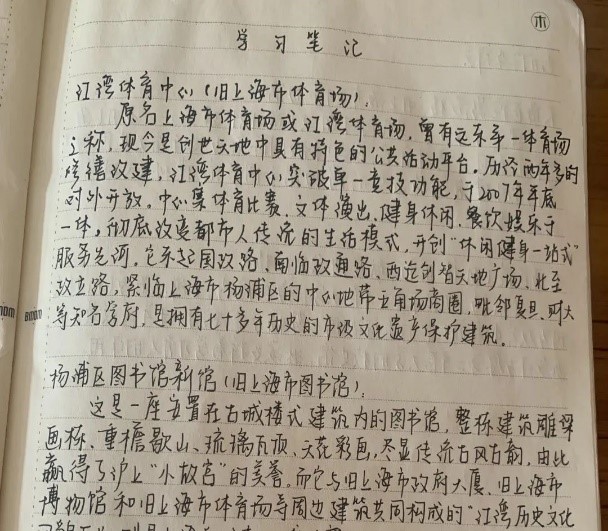 木
学习笔记
江湾体育中心(旧上海市体育场):
原名上海市体育场或江湾体育场,曾有远东第一体育场
之称,现今是创世天地中具有特色的公共活动平台。历经两年多的
修缮改建,江湾体育中心突破单一竞技功能,于2007年年底
对外开放。中心集体育比赛、文体演出、健身休闲、餐饮娱乐于
一体,彻底改变都市人传统的生活模式,开创"休闲健身一站式"
服务先河。它东起国政路、南临政通路、西迄创智天地广场、北至
政立路,紧临上海市杨浦区的中心地带五角场商圈,毗邻复旦、财大
等知名学府,是拥有七十多年历史的市级文化遗产保护建筑。
杨浦区图书馆新馆(旧上海市图书馆):
这是一座安置在古城楼式建筑内的图书馆,整栋建筑雕梁
画栋、重檐歇山、琉璃瓦顶、天花彩画,尽显传统古风古韵,由此
赢得了沪上"小故宫"的美誉。而它与旧上海市政府大厦、旧上海市
博物馆和旧上海市体育场等周边建筑共同构成的"江湾历史文化